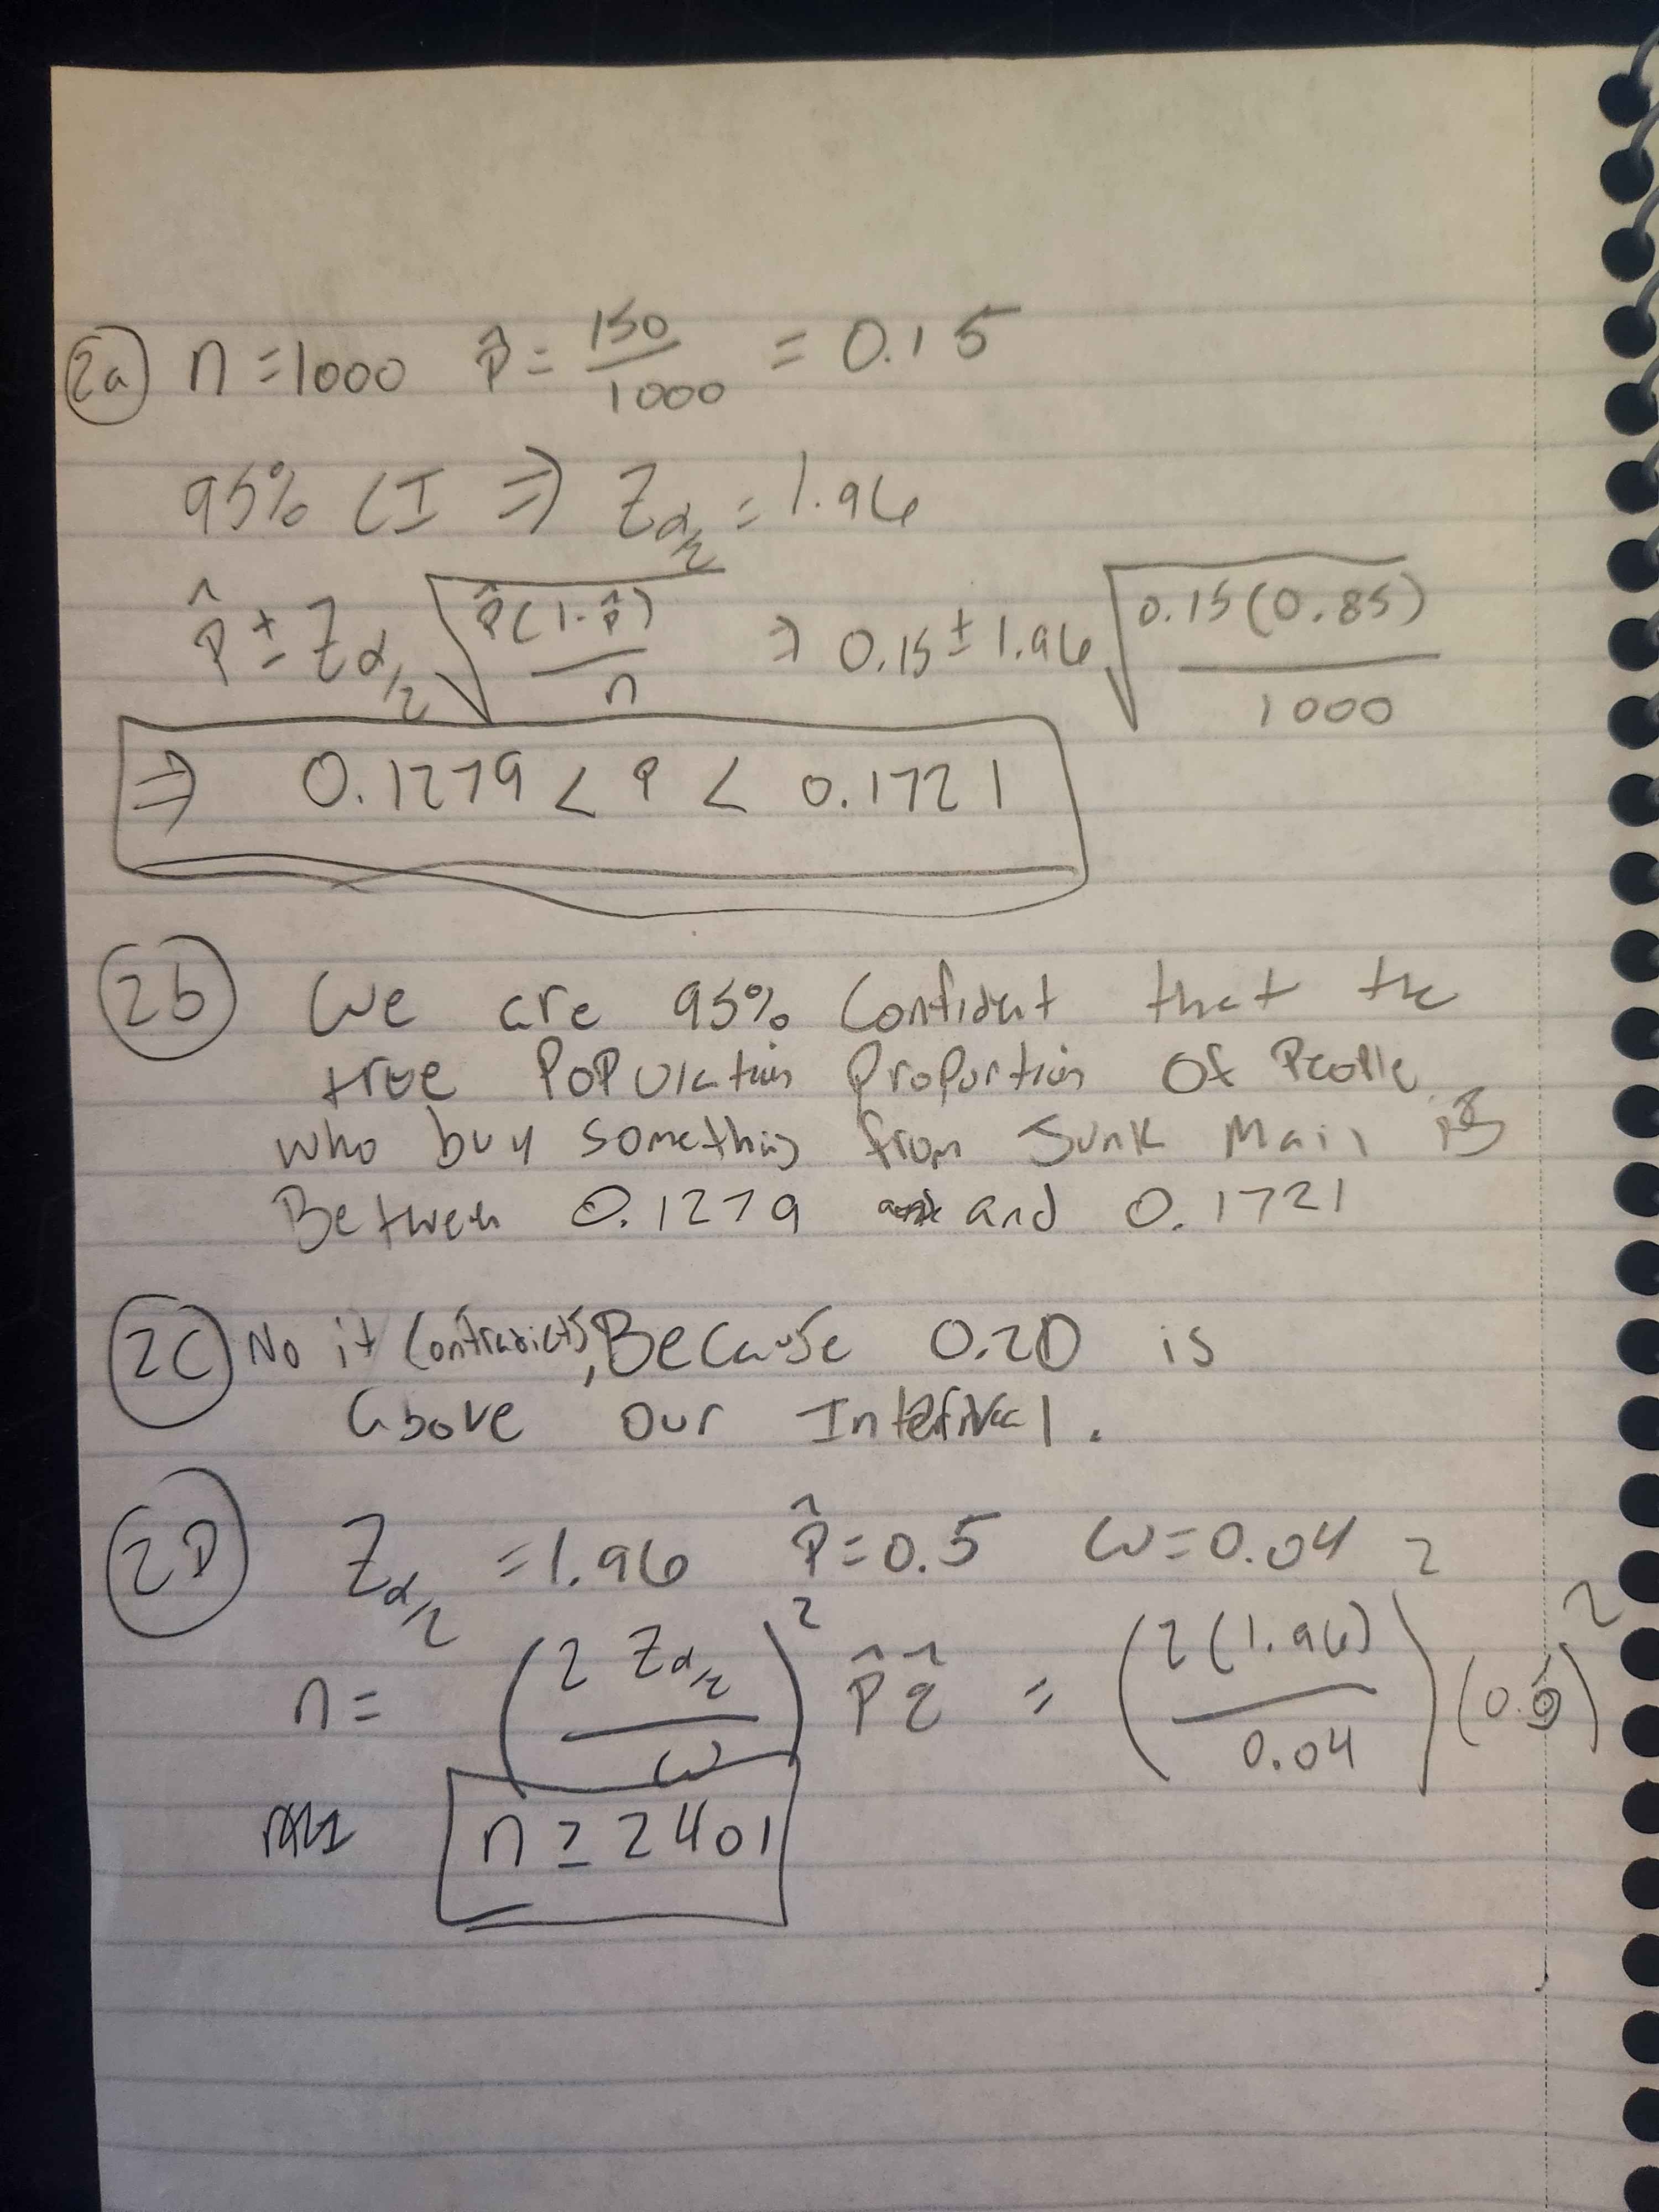 2a n = 1000 p̂ = 150/1000 = 0.15
95% CI ⇒ Zα/2 = 1.96
p̂ ± Zα/2 √(p̂(1-p̂)/n) ⇒ 0.15 ± 1.96 √(0.15(0.85)/1000)
⇒ 0.1279 < P < 0.1721
2b We are 95% Confident that the
true Population Proportion Of People
who buy something from Junk Mail is
Between 0.1279 and 0.1721
2C No it Contradicts, Because 0.20 is
above our Interval.
2D Zα/2 = 1.96 p̂ = 0.5 ω = 0.04
n = (2 Zα/2 / ω)² p̂ q̂ = (2(1.96) / 0.04)² (0.5)²
n ≥ 2401